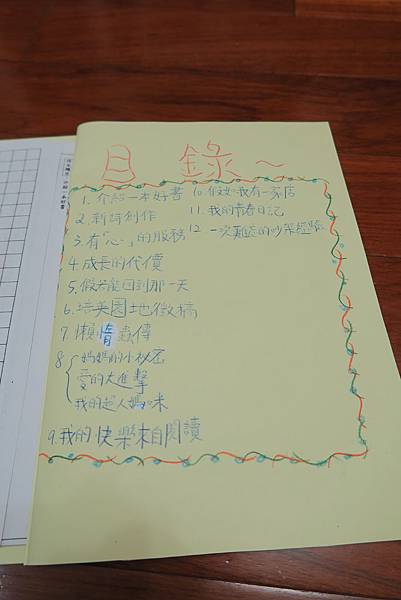 目錄~
1. 介紹一本好書
2. 新詩創作
3. 有「心」的服務
4. 成長的代價
5. 假若能回到那一天
6. 培英園地徵稿
7. 懶惰蟲傳
8 媽媽的小秘密
愛的大進擊
我的超人媽咪
9. 我的快樂來自閱讀
10. 假如我有一家店
11. 我的青春日記
12 一次難忘的吵架經驗